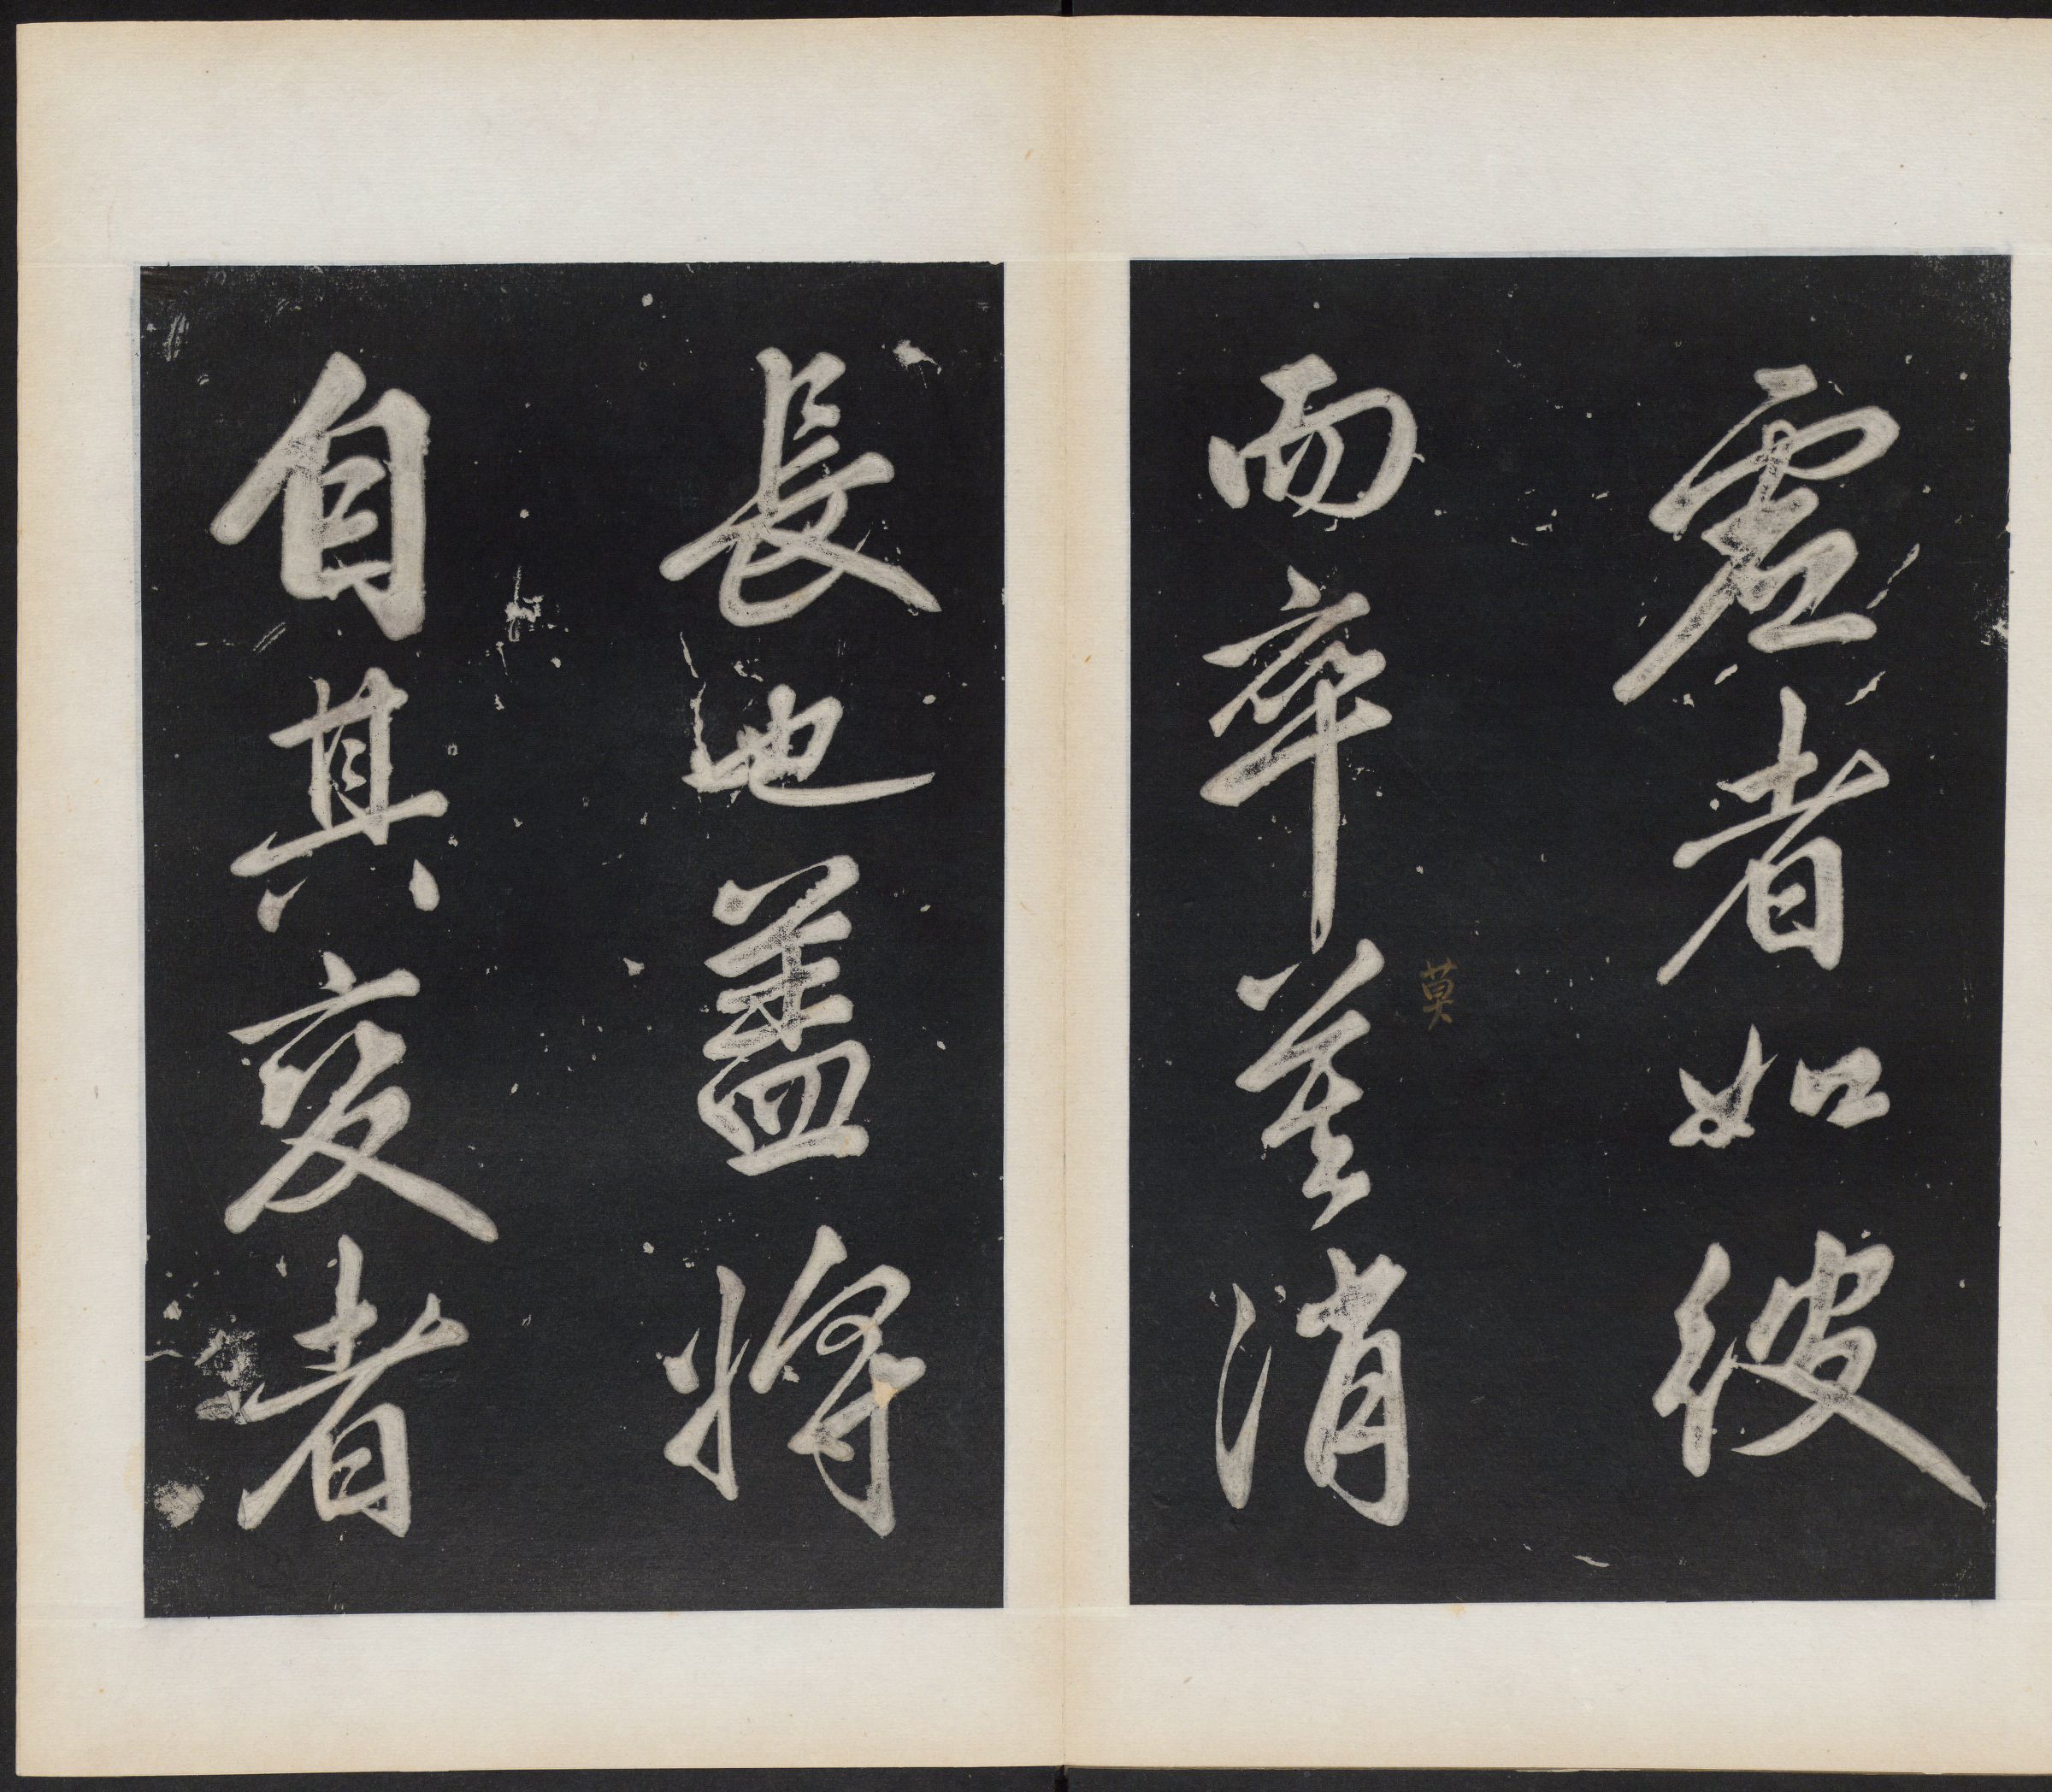 虛者如彼
而卒莫消
莫
長也蓋將
自其變者